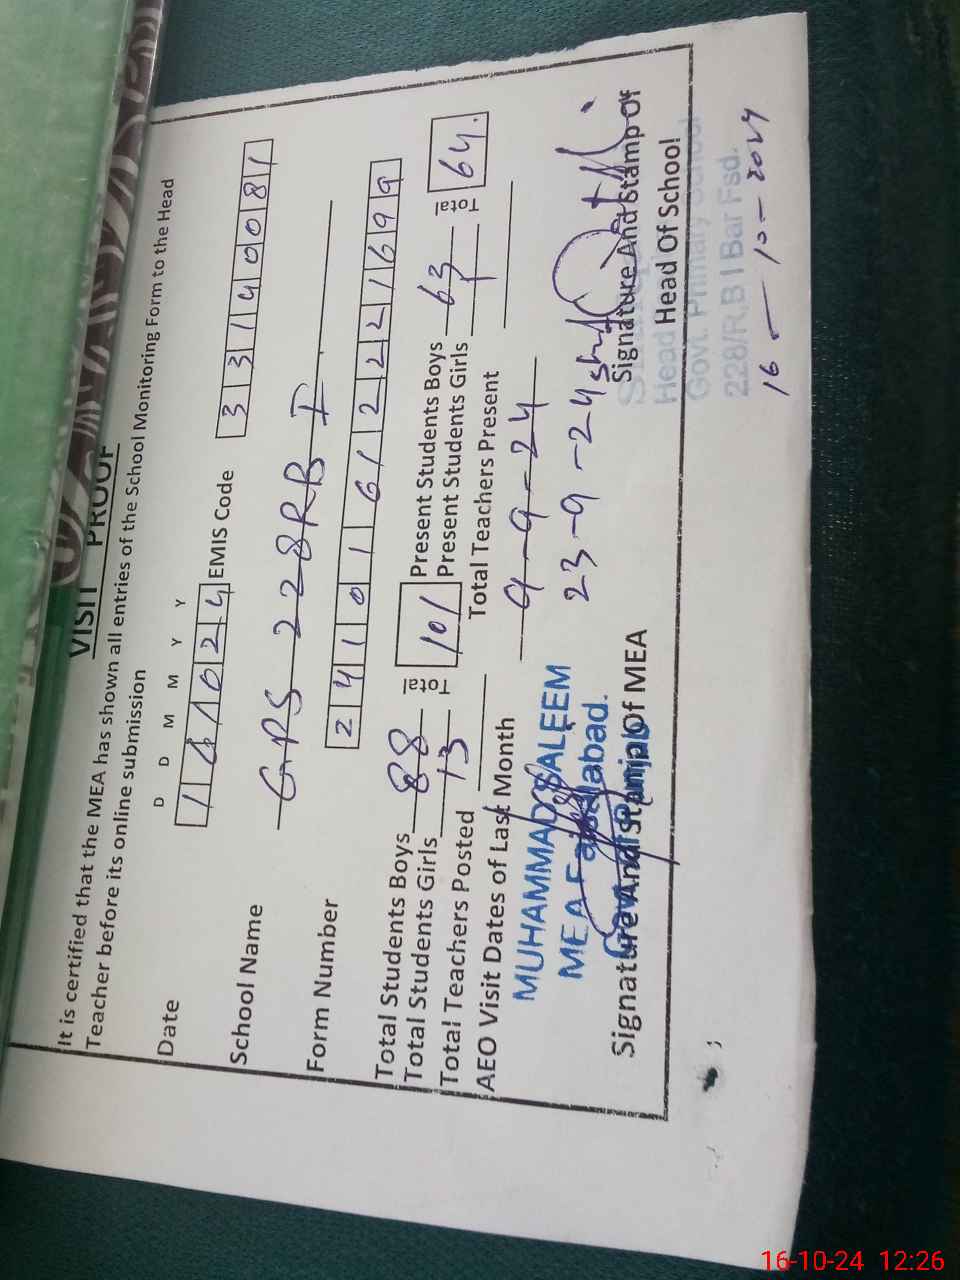 VISIT PROOF
It is certified that the MEA has shown all entries of the School Monitoring Form to the Head
Teacher before its online submission
D D M M Y Y
Date 161024 EMIS Code 33140081
School Name GPS 228RB I
Form Number 24101612221699
Total Students Boys 88 Total 101 Present Students Boys 63 Total 64.
Total Students Girls 13 Present Students Girls 1
Total Teachers Posted Total Teachers Present
AEO Visit Dates of Last Month 9-9-24
23-9-24
MUHAMMAD SALEEM
MEA Faisalabad.
Signature And Stamp Of MEA
Signature And Stamp Of
Head Of School
Govt. Primary School
228/R.B I Bar Fsd.
16-10-2024
16-10-24 12:26